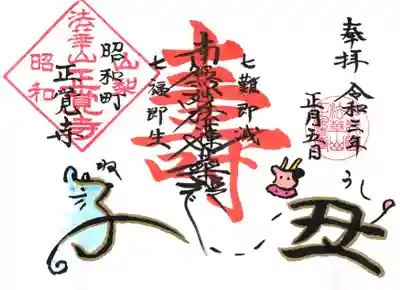 奉拝 令和三年
正月五日
七難即滅
七福即生
南無妙法蓮華経
壽
昭和町
正覚寺
法華山正覚寺
山梨
昭和
うし
丑
ね
子